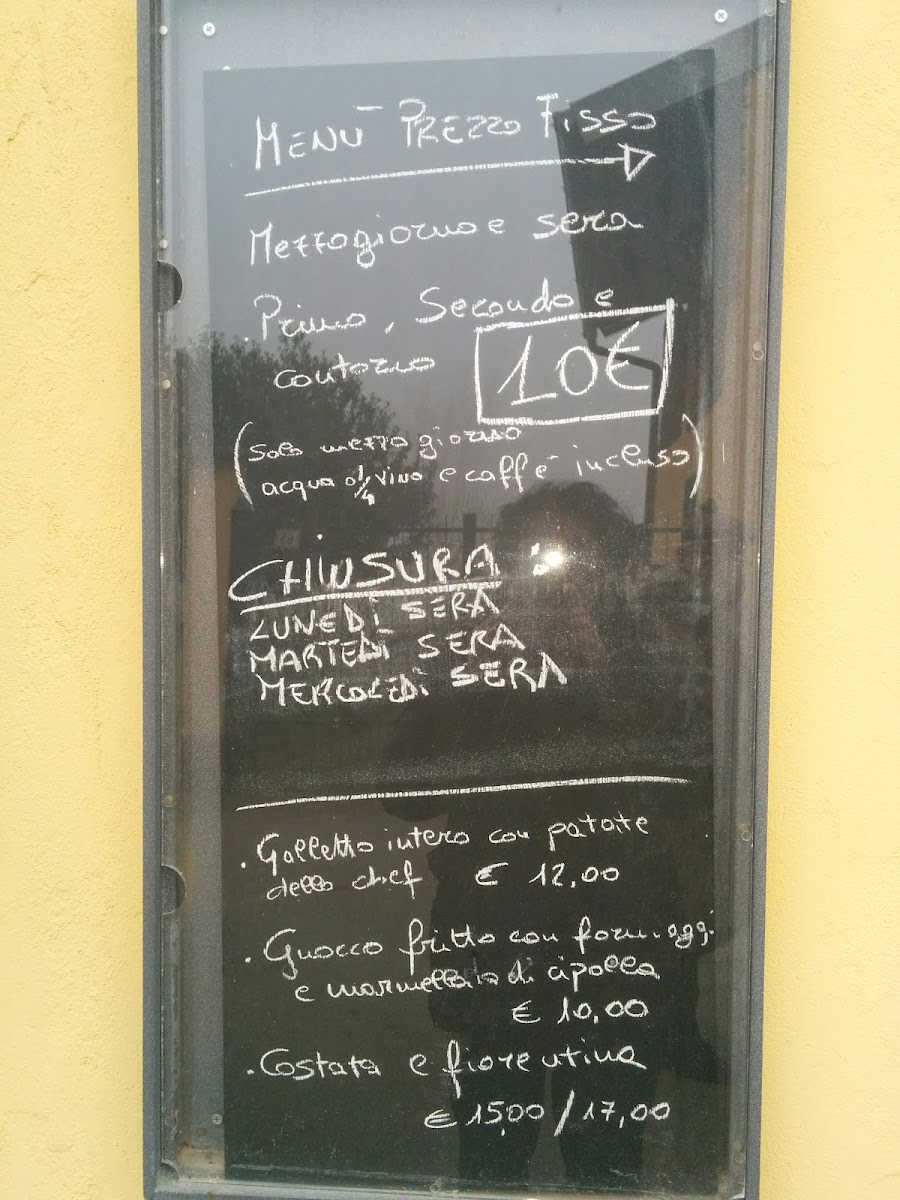 MENÙ PREZZO FISSO
Mezzogiorno e sera
.Primo, Secondo e
contorno 10€
(solo mezzo giorno
acqua o 1/4 vino e caffè incluso)
CHIUSURA:
LUNEDÌ SERA
MARTEDÌ SERA
MERCOLEDÌ SERA
. Galletto intero con patate
dello chef € 12,00
. Gnocco fritto con formaggi
e marmellata di cipolla
€ 10,00
. Costata e fiorentina
€ 15,00 / 17,00